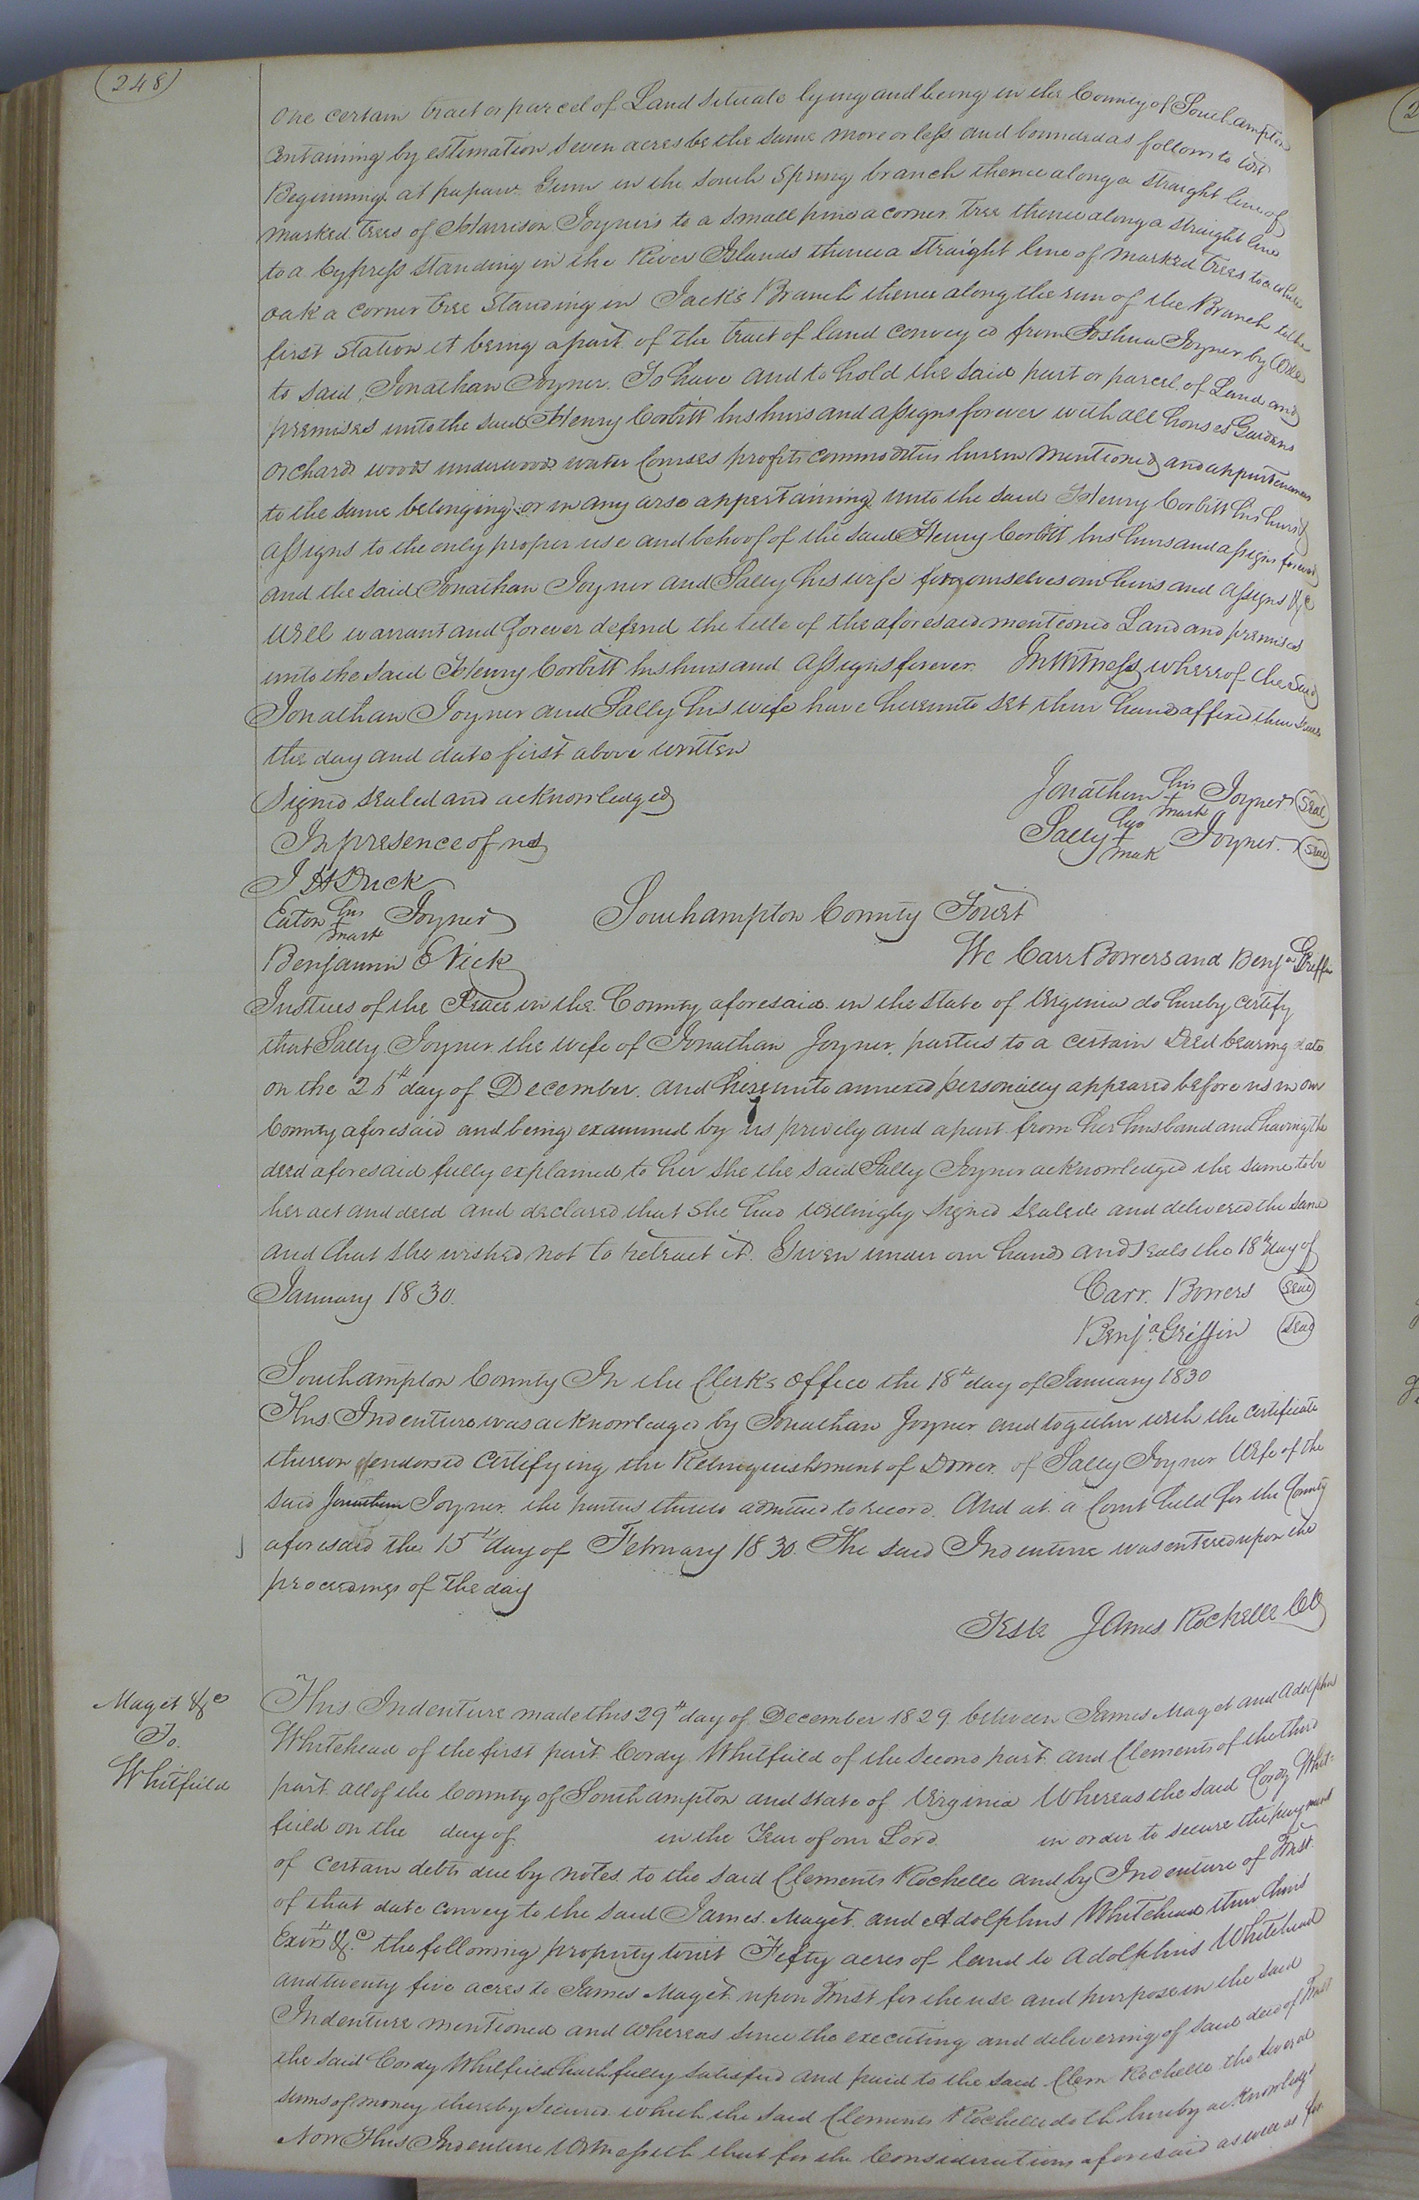 (248)
One certain tract or parcel of Land Situate lying and being in the County of Southampton
Containing by estimation Seven acres be the same more or less and bounded as follows to wit
Beginning at papaw Gum in the South Spring branch thence along a straight line of
marked trees of Harrison Joyner's to a small pine a corner tree thence along a straight line
to a Cypress Standing in the River Islands thence a straight line of marked trees to a white
oak a corner tree Standing in Jack's Branch thence along the run of the Branch to the
first Station it being a part of the tract of land conveyed from Joshua Joyner by Will
to said Jonathan Joyner. To have and to hold the said part or parcel of Land and
premises unto the said Henry Corbitt his heirs and assigns forever with all houses Gardens
orchards woods underwoods water Courses profits commodities herein mentioned and appurtenances
to the same belonging or in any wise appertaining unto the said Henry Corbitt his heirs &
assigns to the only proper use and behoof of the said Henry Corbitt his heirs and assigns forever
and the said Jonathan Joyner and Sally his wife for ourselves our heirs and assigns &c
will warrant and forever defend the title of the aforesaid mentioned Land and premises
unto the said Henry Corbitt his heirs and assigns forever. In Witness whereof the Said
Jonathan Joyner and Sally his wife have hereunto set their hands affixed their seals
the day and date first above written
Signed sealed and acknowledged
In presence of us
Jonathan his + mark Joyner (Seal)
Sally her + mark Joyner. (Seal)
J H Duck
Eaton his + mark Joyner
Benjamin E Vick
Southampton County Towit
We Carr Bowers and Benja Griffin
Justices of the Peace in the County aforesaid in the state of Virginia do hereby certify
that Sally Joyner the wife of Jonathan Joyner, parties to a certain Deed bearing date
on the 25th day of December. and hereunto annexed personally appeared before us in our
County aforesaid and being examined by us privily and apart from her husband and having the
deed aforesaid fully explained to her she the said Sally Joyner acknowledged the same to be
her act and deed and declared that she had willingly signed sealed and delivered the same
and that she wished not to retract it. Given under our hands and seals the 18th day of
January 1830.
Carr. Bowers (Seal)
Benja. Griffin (Seal)
Southampton County In the Clerks office the 18th day of January 1830
This Indenture was acknowledged by Jonathan Joyner and together with the certificate
thereon endorsed Certifying the Relinquishment of Dower of Sally Joyner Wife of the
said Jonathan Joyner. the parties thereto admitted to record. And at a Court held for the County
aforesaid the 15th day of February 1830. The said Indenture was entered upon the
proceedings of the day
Teste James Rochelle CC
Maget &c
To.
Whitfield
This Indenture made this 29th day of December 1829. between James Maget and Adolphus
Whitehead of the first part Cordy Whitfield of the Second part and Clements of the third
part all of the County of Southampton and State of Virginia Whereas the said Cordy Whit=
field on the day of in the Year of our Lord in order to secure the payment
of certain debts due by notes to the said Clements Rochelle and by Indenture of Trust
of that date convey to the said James Maget and Adolphus Whitehead their heirs
Exors &c. the following property towit Fifty acres of land to Adolphus Whitehead
and twenty five acres to James Maget upon Trust for the use and purpose in the said
Indenture mentioned and whereas since the executing and delivering of said deed of Trust
the said Cordy Whitfield hath fully satisfied and paid to the said Clem Rochelle the several
sums of money thereby secured which the said Clements Rochelle doth hereby acknowledge
Now This Indenture Witnesseth that for the Consideration aforesaid as well as for